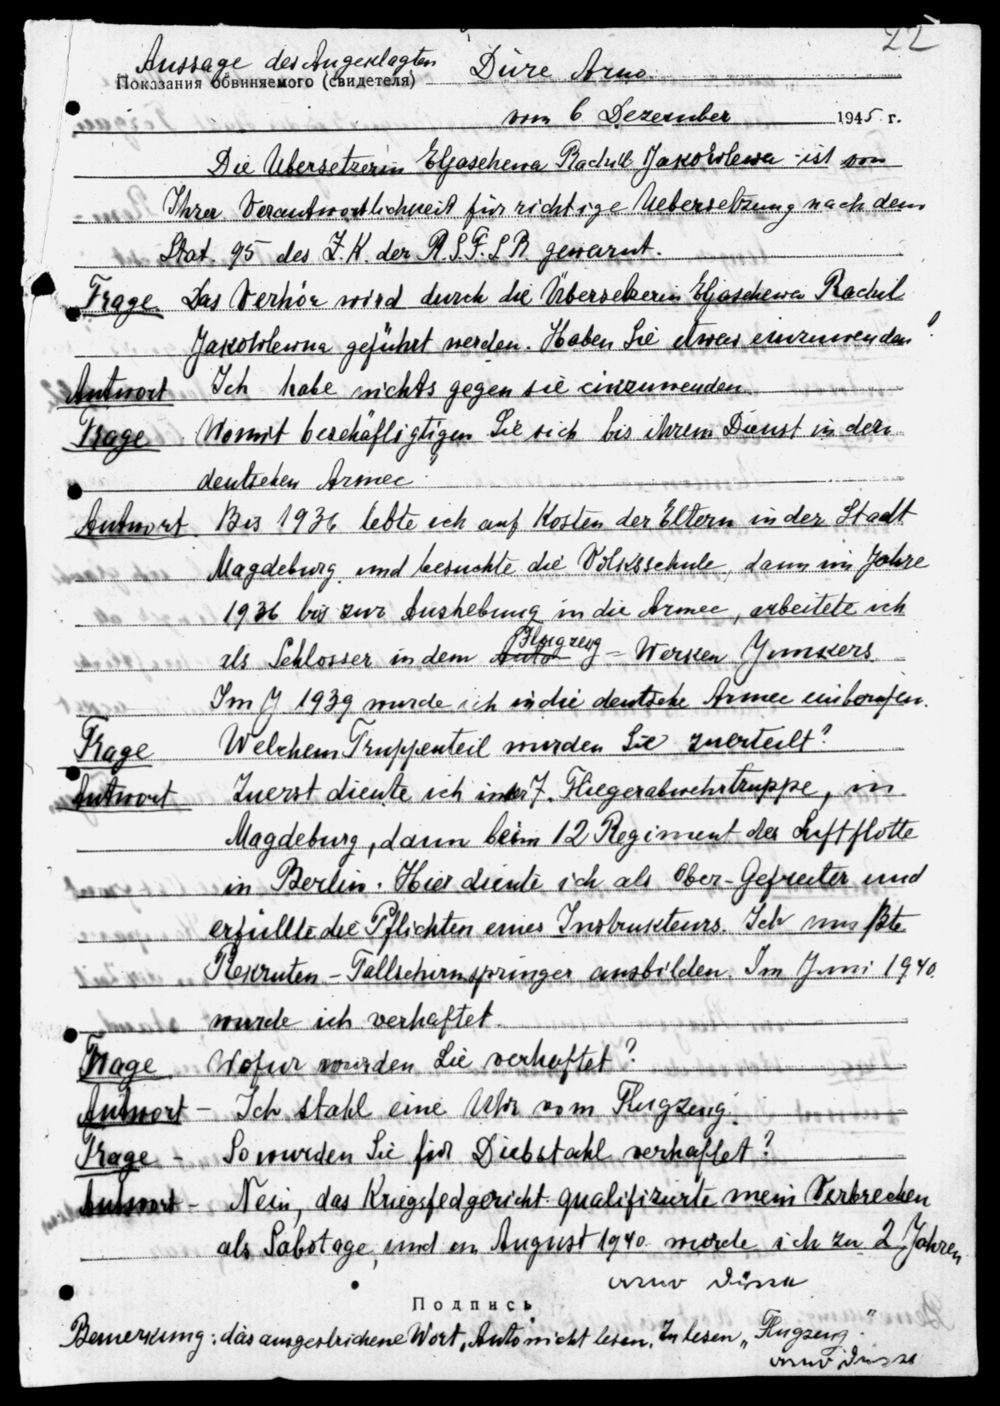 22
Aussage des Angeklagten Düre Arno.
Показания обвиняемого (свидетеля)
vom 6 Dezember 1945 г.
Die Übersetzerin Eljaschewa Rachil Jakowlewa ist von
Ihrer Verantwortlichkeit für richtige Uebersetzung nach dem
Stat. 95 des Z.K. der R.S.F.S.R gewarnt.
Frage. Das Verhör wird durch die Übersetzerin Eljaschewa Rachil
Jakowlewna geführt werden. Haben Sie etwas einzuwenden?
Antwort Ich habe nichts gegen sie einzuwenden.
Frage Womit beschäftsigtigen Sie sich bis ihrem Dienst in der
deutschen Armee?
Antwort. Bis 1936 lebte ich auf Kosten der Eltern in der Stadt
Magdeburg und besuchte die Volksschule, dann im Jahre
1936 bis zur Aushebung in die Armee, arbeitete ich
als Schlosser in dem Auto Flugzeug - Werken Junkers.
Im J 1939 wurde ich in die deutsche Armee einberufen.
Frage Welchem Truppenteil wurden Sie zuerteilt?
Antwort Zuerst diente ich in der 7. Fliegerabwehrtruppe, in
Magdeburg, dann beim 12 Regiment der Luftflotte
in Berlin. Hier diente ich als Ober-Gefreiter und
erfüllte die Pflichten eines Instrukteurs. Ich mußte
Rekruten - Fallschirmspringer ausbilden. Im Juni 1940.
wurde ich verhaftet.
Frage Wofur wurden Sie verhaftet?
Antwort - Ich stahl eine Uhr vom Flugzeug.
Frage - So wurden Sie für Diebstahl verhaftet?
Antwort - Nein, das Kriegsfedgericht qualifizierte mein Verbrechen
als Sabotage, und im August 1940 wurde ich zu 2 Jahren
Arno Düre
Подпись
Bemerkung: das ausgestrichene Wort „Auto nicht lesen. Zu lesen „Flugzeug."
Arno Düre